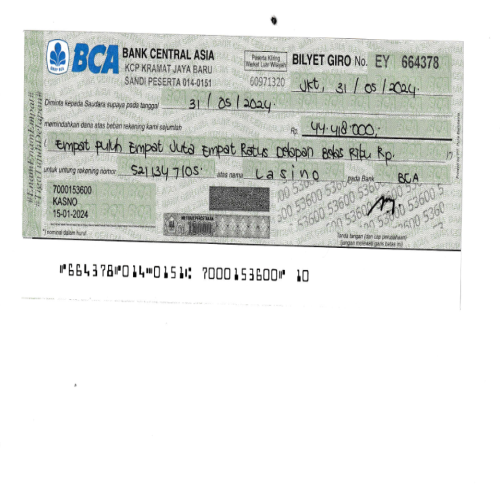 BCA
BANK CENTRAL ASIA
KCP KRAMAT JAYA BARU
SANDI PESERTA 014-0151
Peserta Kliring
60971320
BILYET GIRO No. EY 664378
Jkt, 31 / 05 / 2024
Diminta kepada Saudara supaya pada tanggal 31 / 05 / 2024
memindahkan dana atas beban rekening kami sejumlah Rp. 44.418.000,-
( Empat puluh Empat Juta Empat Ratus Delapan Belas Ribu Rp. )
untuk untung rekening nomor 5211347105 atas nama Lasino pada Bank BCA
7000153600
KASNO
15-01-2024
*) nominal dalam huruf
Tanda tangan (dan cap perusahaan)
⑈664378⑈014⑉0151⑆ 7000153600⑈ 10